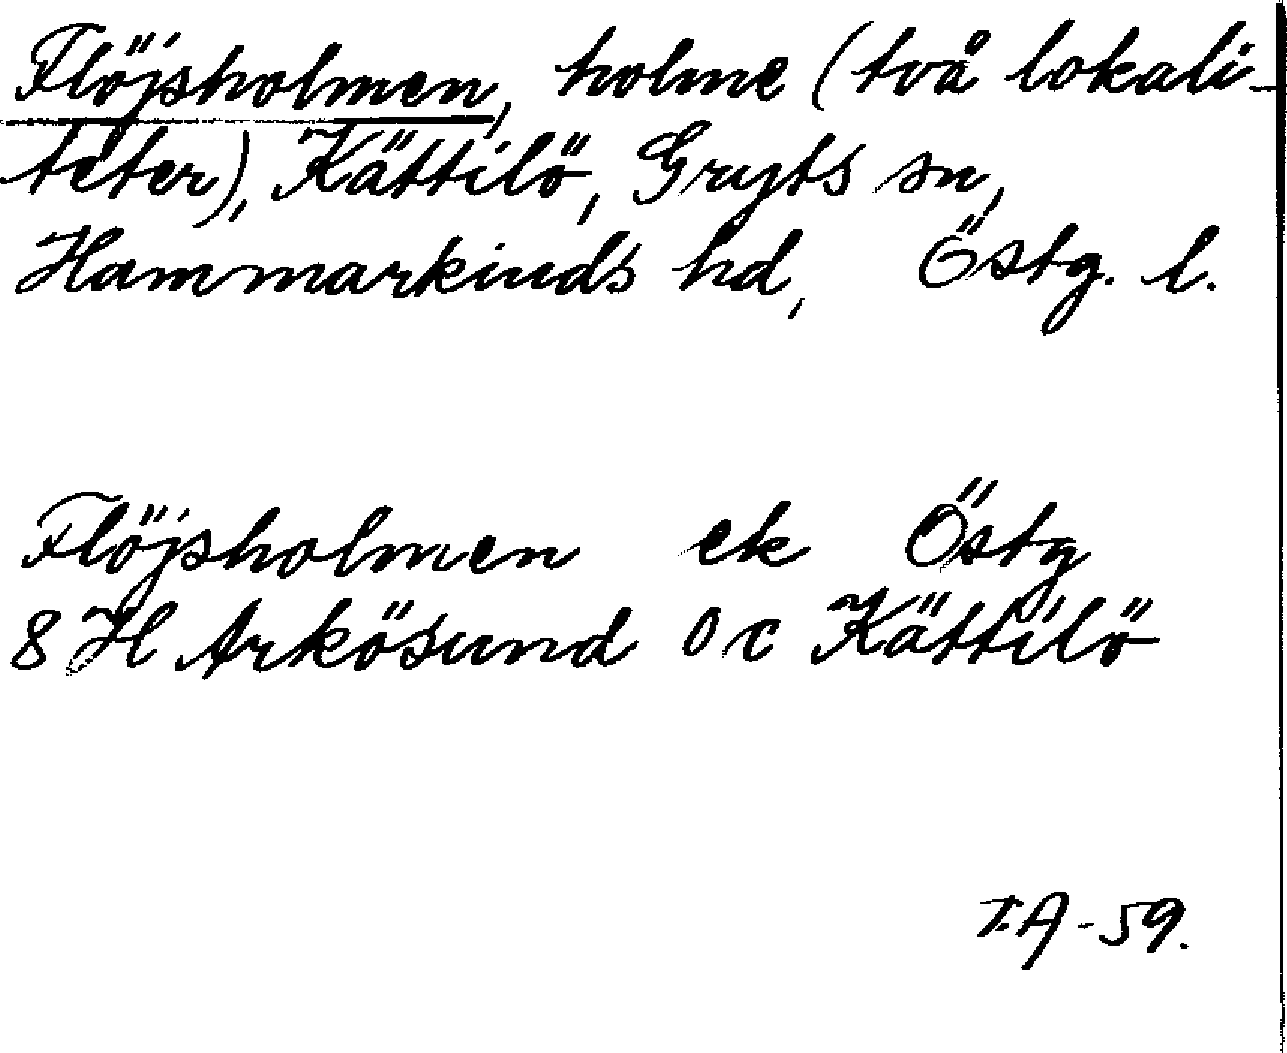 Flöjsholmen, holme (två lokali-
teter), Kättilö, Gryts sn,
Hammarkinds hd, Östg. l.
Flöjsholmen ek Östg
8 H Arkösund 0 c Kättilö
T.A-59.